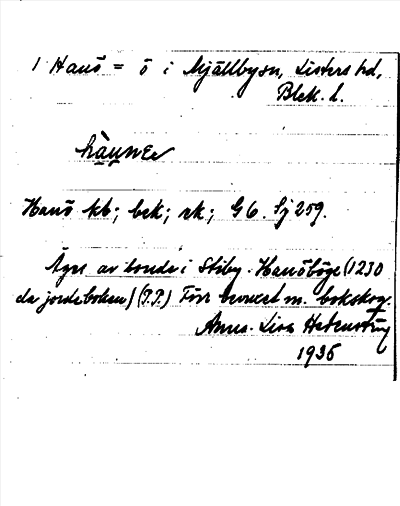 1 Hanö = ö i Mjällbysn, Listers hd,
Blek. l.
Hanö kb; bek; rk; G 6. Sj 259.
Äges av bonde i Stiby. Hanöböge (1230
da jordeboken) (T.T.) Förr bevuxet m. bokskog.
Anna-Lisa
1935